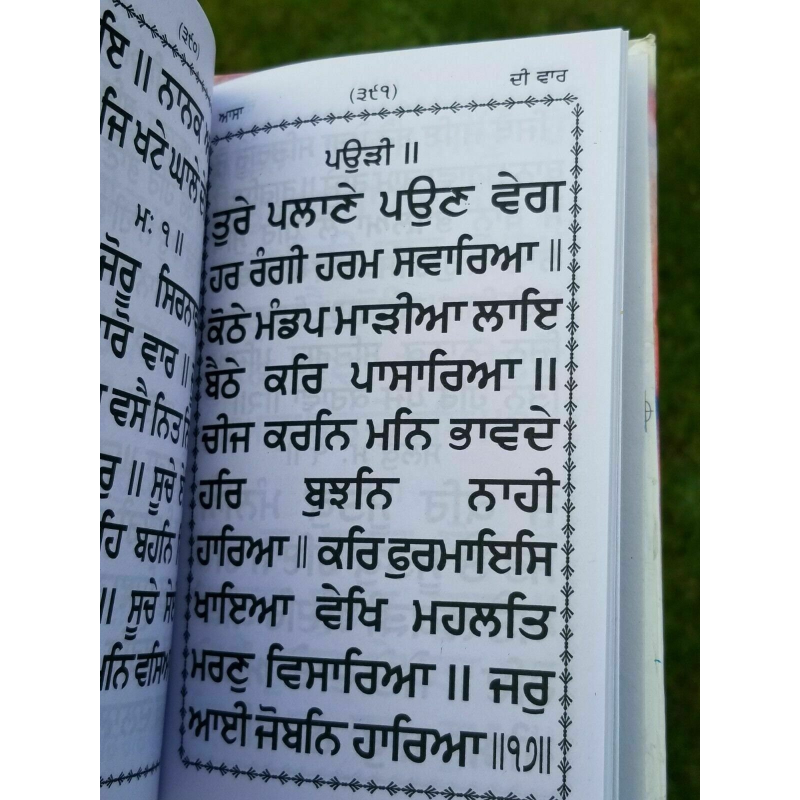 (੩੯੦)
ਇ ॥ ਨਾਨਕ
ਜਿ ਖਟੇ ਘਾਲੇ
ਮਃ ੧ ॥
ਜੋਰੂ
ਵਾਰ ॥
ਵਸੈ ਨਿਤ
॥ ਸੂਚੇ
ਬਹਨਿ
॥ ਸੂਚੇ
ਮਨਿ ਵਸਿਆ
ਆਸਾ (੩੯੧) ਦੀ ਵਾਰ
ਪਉੜੀ ॥
ਤੁਰੇ ਪਲਾਣੇ ਪਉਣ ਵੇਗ
ਹਰ ਰੰਗੀ ਹਰਮ ਸਵਾਰਿਆ ॥
ਕੋਠੇ ਮੰਡਪ ਮਾੜੀਆ ਲਾਇ
ਬੈਠੇ ਕਰਿ ਪਾਸਾਰਿਆ ॥
ਚੀਜ ਕਰਨਿ ਮਨਿ ਭਾਵਦੇ
ਹਰਿ ਬੁਝਨਿ ਨਾਹੀ
ਹਾਰਿਆ ॥ ਕਰਿ ਫੁਰਮਾਇਸਿ
ਖਾਇਆ ਵੇਖਿ ਮਹਲਤਿ
ਮਰਣੁ ਵਿਸਾਰਿਆ ॥ ਜਰੁ
ਆਈ ਜੋਬਨਿ ਹਾਰਿਆ ॥੧੭॥